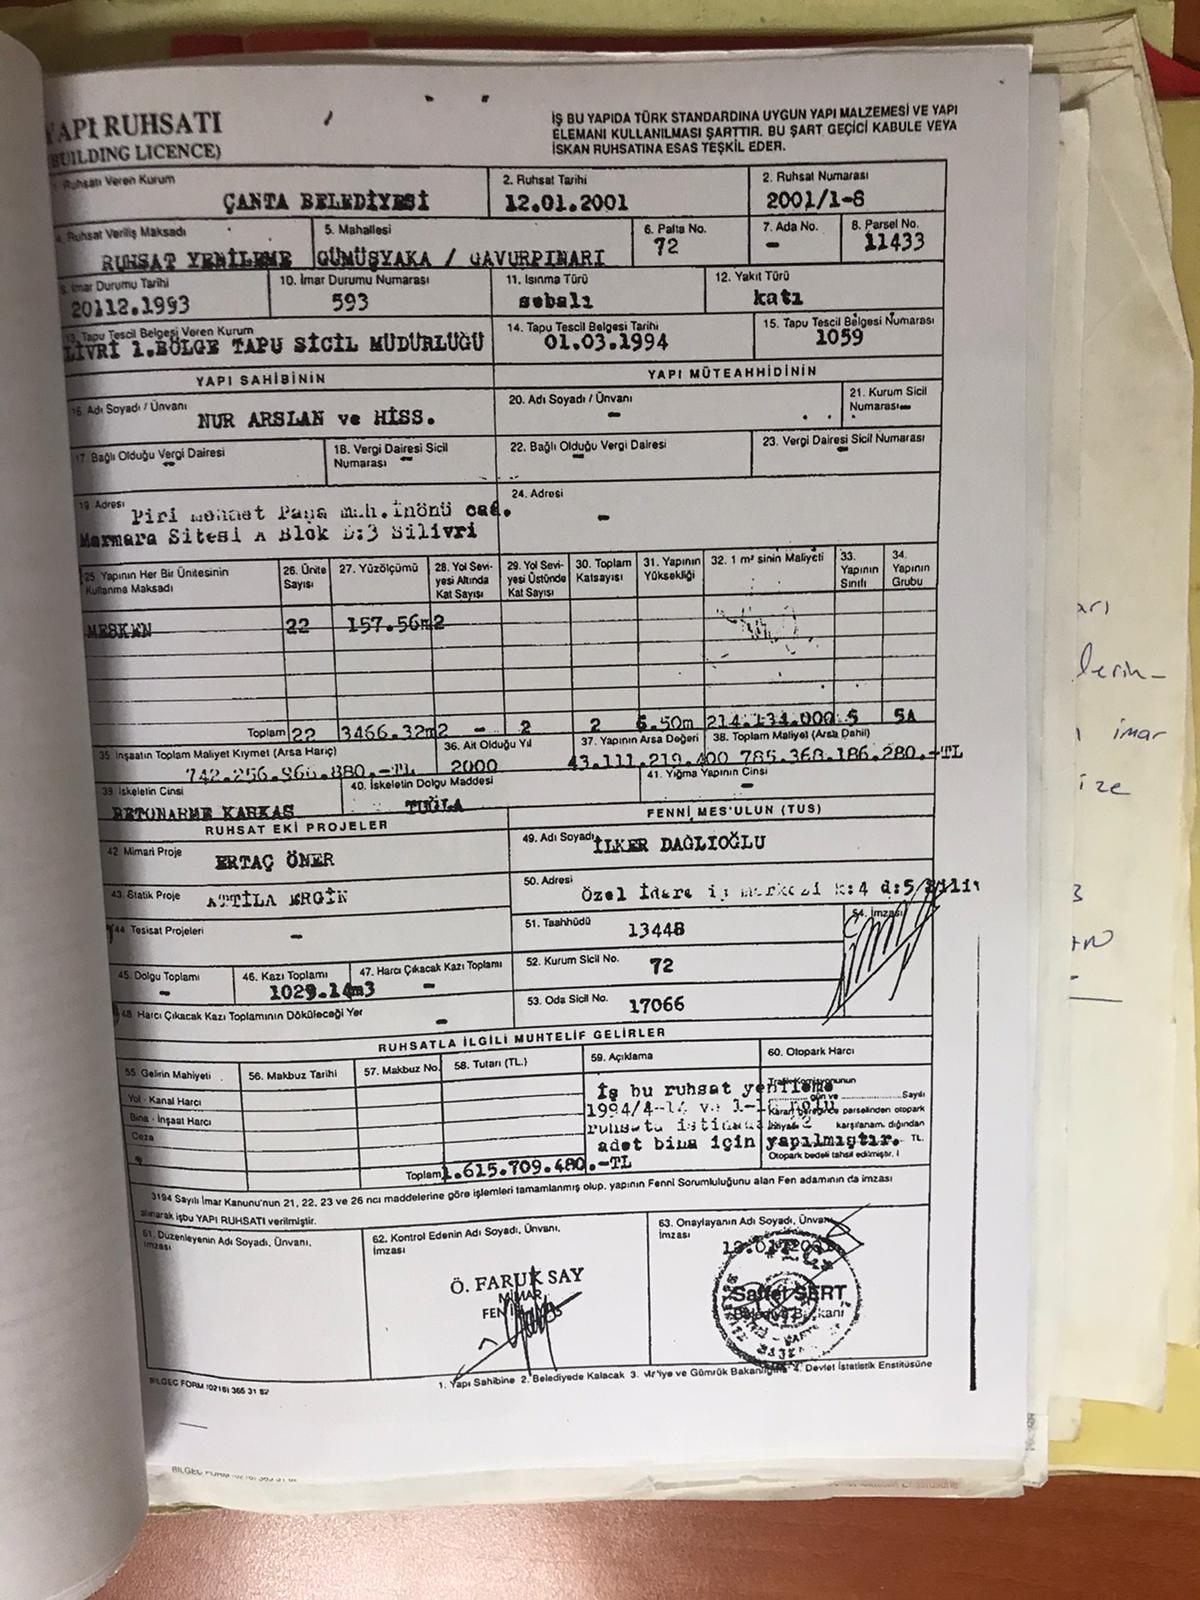 YAPI RUHSATI
(BUILDING LICENCE)
İŞ BU YAPIDA TÜRK STANDARDINA UYGUN YAPI MALZEMESİ VE YAPI
ELEMANI KULLANILMASI ŞARTTIR. BU ŞART GEÇİCİ KABULE VEYA
İSKAN RUHSATINA ESAS TEŞKİL EDER.
Ruhsatı Veren Kurum
ÇANTA BELEDİYESİ
2. Ruhsat Tarihi
12.01.2001
2. Ruhsat Numarası
2001/1-8
4. Ruhsat Veriliş Maksadı
RUHSAT YENİLEME
5. Mahallesi
GÜMÜŞYAKA / GAVURPINARI
6. Pafta No.
72
7. Ada No.
-
8. Parsel No.
11433
9. İmar Durumu Tarihi
20112.1993
10. İmar Durumu Numarası
593
11. Isınma Türü
sobalı
12. Yakıt Türü
katı
13. Tapu Tescil Belgesi Veren Kurum
LİVRİ 1.BÖLGE TAPU SİCİL MÜDÜRLÜĞÜ
14. Tapu Tescil Belgesi Tarihi
01.03.1994
15. Tapu Tescil Belgesi Numarası
1059
YAPI SAHİBİNİN
YAPI MÜTEAHHİDİNİN
16. Adı Soyadı / Ünvanı
NUR ARSLAN ve HİSS.
20. Adı Soyadı / Ünvanı
-
21. Kurum Sicil
Numarası-
17. Bağlı Olduğu Vergi Dairesi
-
18. Vergi Dairesi Sicil
Numarası -
22. Bağlı Olduğu Vergi Dairesi
-
23. Vergi Dairesi Sicil Numarası
-
19. Adresi
Piri Mehmet Paşa mah. İnönü cad.
Marmara Sitesi A Blok D:3 Silivri
24. Adresi
-
25. Yapının Her Bir Ünitesinin
Kullanma Maksadı
26. Ünite
Sayısı
27. Yüzölçümü
28. Yol Sevi-
yesi Altında
Kat Sayısı
29. Yol Sevi-
yesi Üstünde
Kat Sayısı
30. Toplam
Katsayısı
31. Yapının
Yüksekliği
32. 1 m² sinin Maliyeti
33.
Yapının
Sınıfı
34.
Yapının
Grubu
MESKEN 22 157.56m2
Toplam 22 3466.32m2 - 2 2 6.50m 214.134.000 5 5A
35. İnşaatın Toplam Maliyet Kıymet (Arsa Hariç)
36. Ait Olduğu Yıl
2000
37. Yapının Arsa Değeri
43.111.219.400
38. Toplam Maliyet (Arsa Dahil)
785.368.186.280.-TL
39. İskeletin Cinsi
BETONARME KARKAS
40. İskeletin Dolgu Maddesi
TUĞLA
41. Yığma Yapının Cinsi
-
RUHSAT EKİ PROJELER
FENNİ MES'ULUN (TUS)
42. Mimari Proje
ERTAÇ ÖNER
49. Adı Soyadı
İLKER DAĞLIOĞLU
43. Statik Proje
ATTİLA ERGİN
50. Adresi
Özel İdare iş merkezi k:4 d:5
44. Tesisat Projeleri
-
51. Taahhüdü
13448
54. İmzası
45. Dolgu Toplamı
-
46. Kazı Toplamı
1029.14m3
47. Harcı Çıkacak Kazı Toplamı
-
52. Kurum Sicil No.
72
48. Harcı Çıkacak Kazı Toplamının Döküleceği Yer
-
53. Oda Sicil No.
17066
RUHSATLA İLGİLİ MUHTELİF GELİRLER
55. Gelirin Mahiyeti
56. Makbuz Tarihi
57. Makbuz No.
58. Tutarı (TL.)
59. Açıklama
60. Otopark Harcı
Yol - Kanal Harcı
Bina - İnşaat Harcı
Ceza
Toplam 1.615.709.480.-TL
İş bu ruhsat yenileme
1994/4-14 ve
ruhsata istinaden 2
adet bina için yapılmıştır.
Trafik Komisyonunun
gün ve Sayılı
Kararı gereğince parselinden otopark
ihtiyacı karşılanamadığından
TL.
Otopark bedeli tahsil edilmiştir.
3194 Sayılı İmar Kanunu'nun 21, 22, 23 ve 26 ncı maddelerine göre işlemleri tamamlanmış olup, yapının Fenni Sorumluluğunu alan Fen adamının da imzası
alınarak işbu YAPI RUHSATI verilmiştir.
61. Düzenleyenin Adı Soyadı, Ünvanı,
İmzası
62. Kontrol Edenin Adı Soyadı, Ünvanı,
İmzası
Ö. FARUK SAY
MİMAR
63. Onaylayanın Adı Soyadı, Ünvanı
İmzası
Saffet SERT
Belediye Başkanı
BİLGEÇ FORM (0216) 365 31 82
1. Yapı Sahibine 2. Belediyede Kalacak 3. Mal'iye ve Gümrük Bakanlığına 4. Devlet İstatistik Enstitüsüne
imar